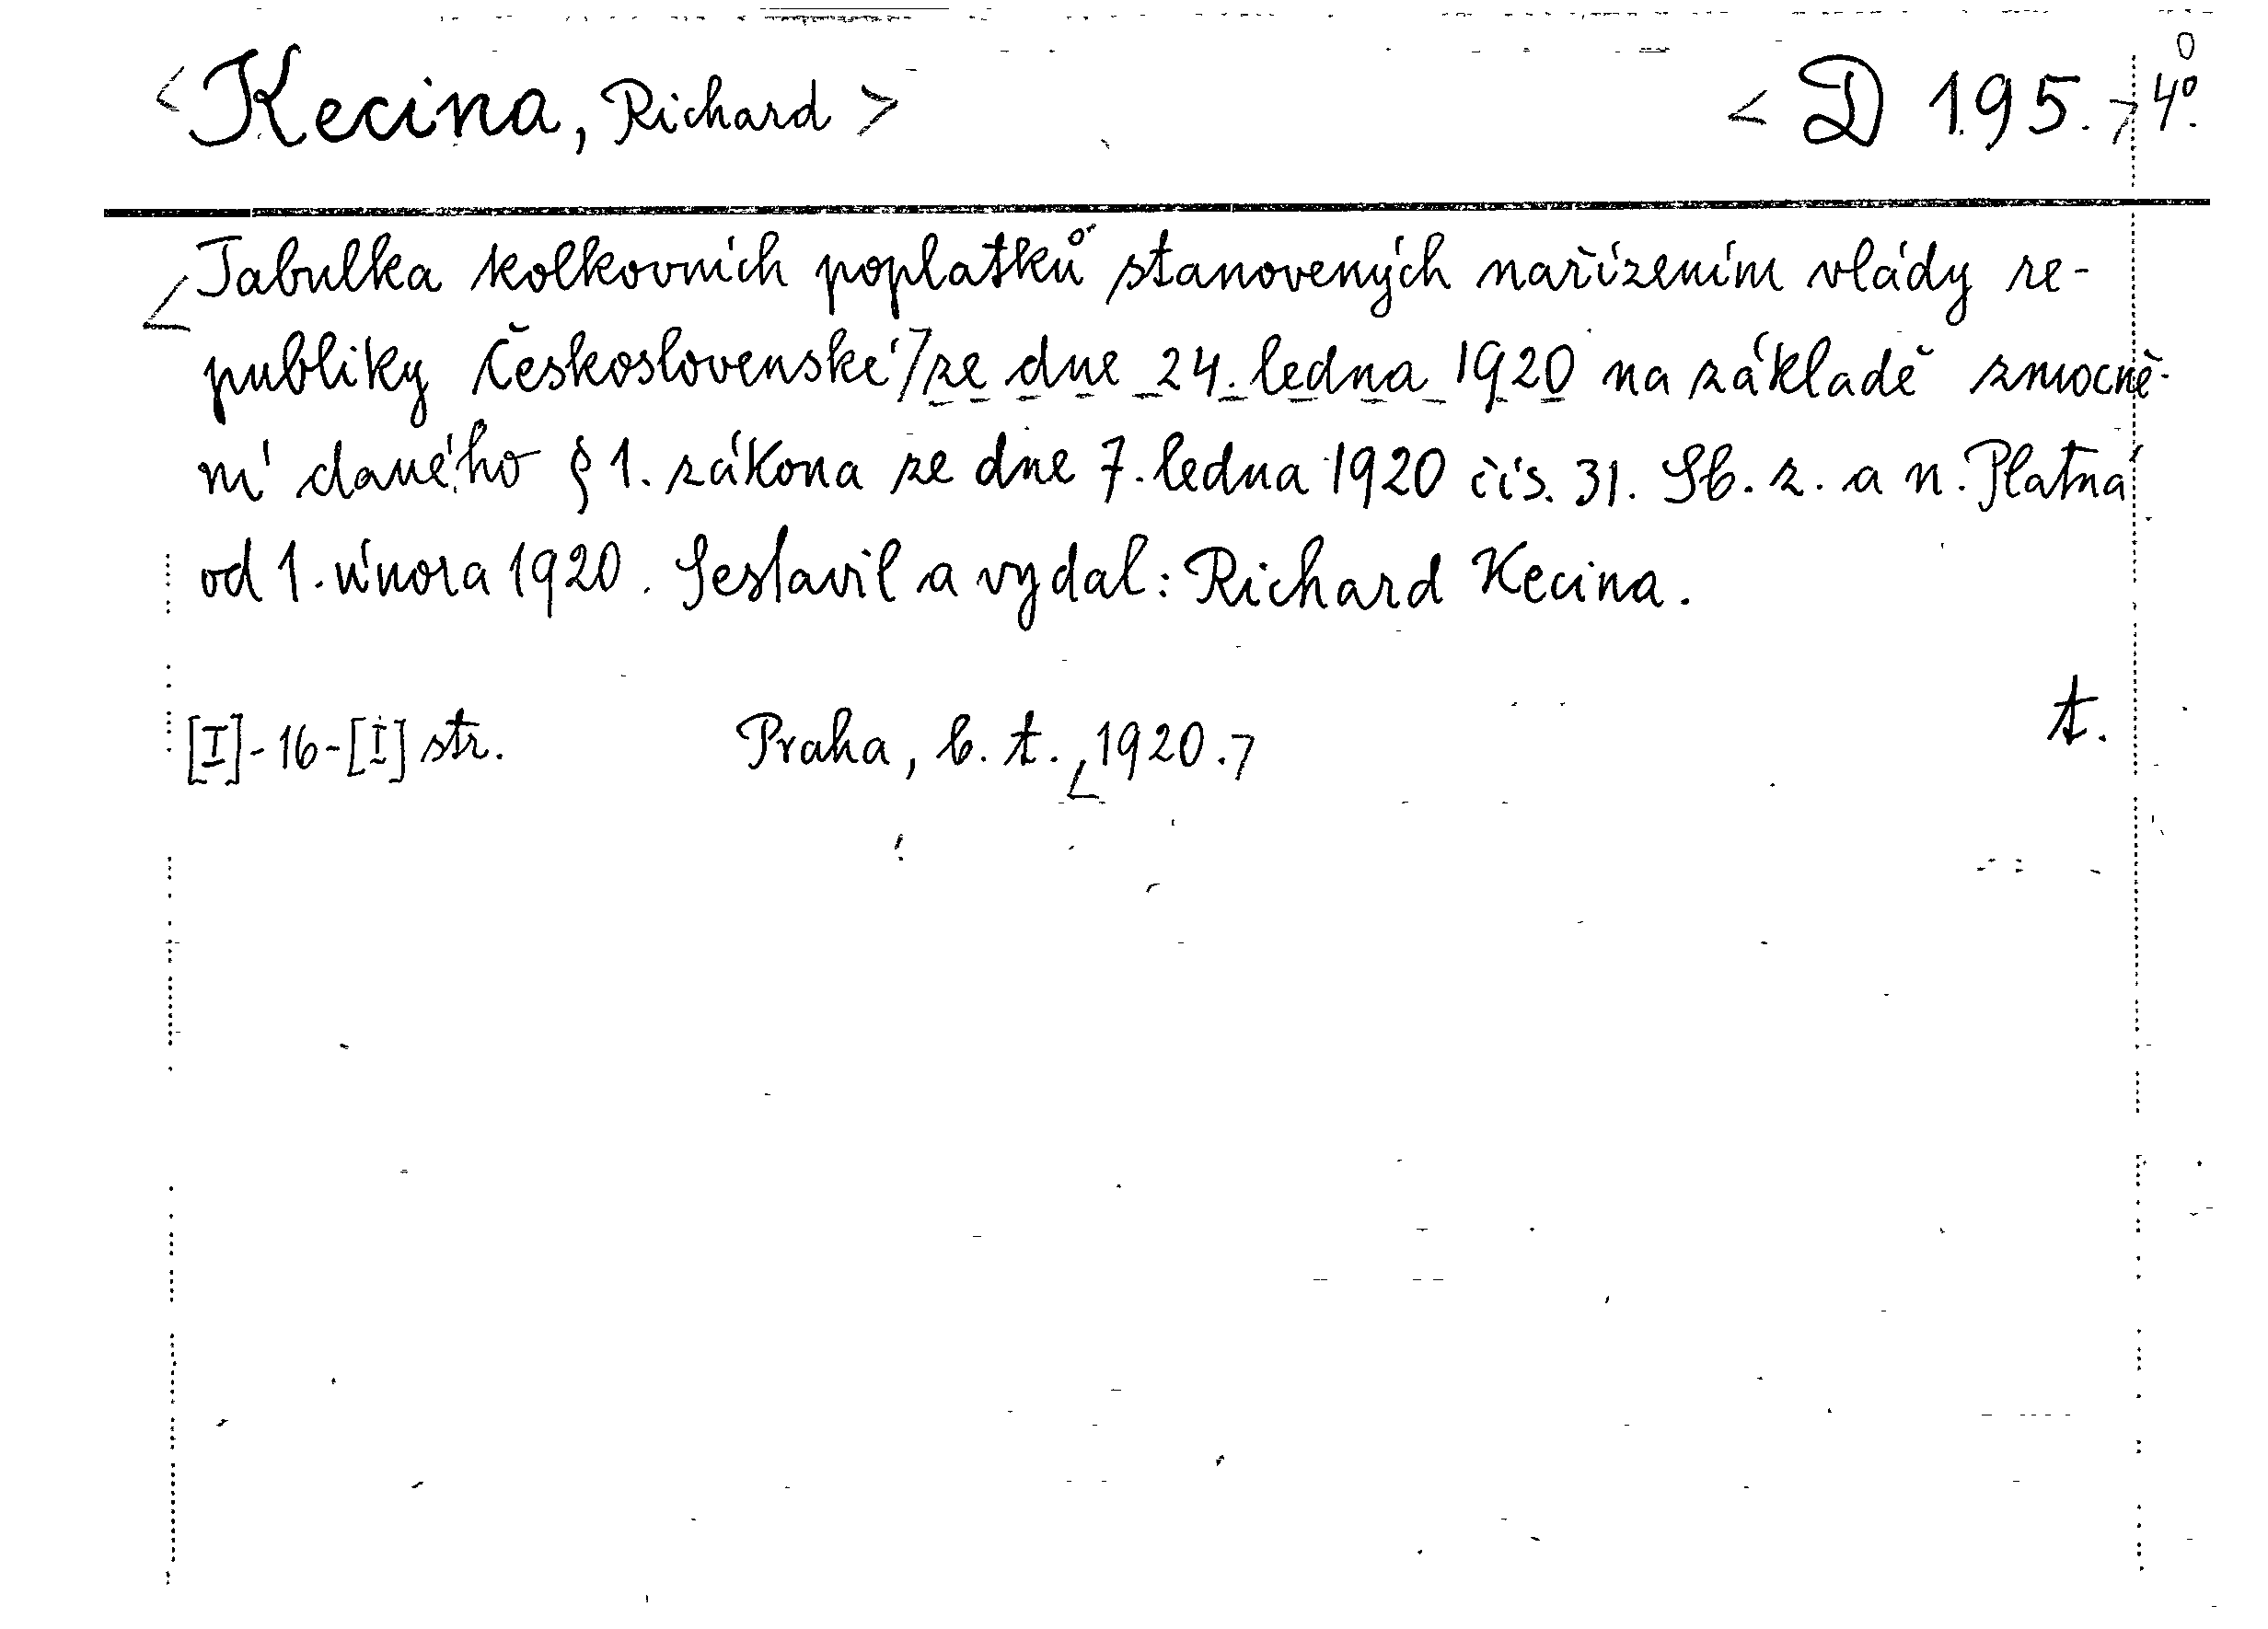 <Kecina, Richard> <D 195.> 4°.
Tabulka kolkovních poplatků stanovených nařízením vlády re-
publiky Československé/ze dne 24. ledna 1920 na základě zmocně-
ní daného § 1. zákona ze dne 7. ledna 1920 čís. 31. Sb. z. a n. Platná
od 1. února 1920. Sestavil a vydal: Richard Kecina.
t.
[I]-16-[I] str. Praha, b. t., 1920.